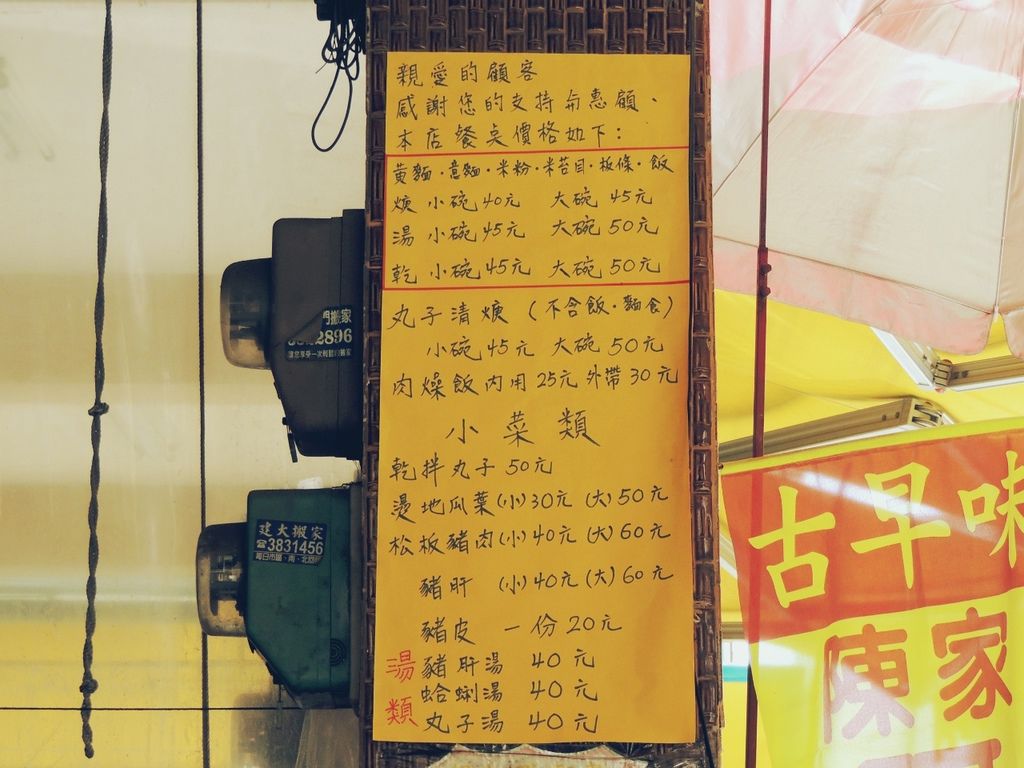 親愛的顧客
感謝您的支持与惠顧、
本店餐桌價格如下：
黃麵·意麵·米粉·米苔目·板條·飯
焿 小碗40元 大碗45元
湯 小碗45元 大碗50元
乾 小碗45元 大碗50元
丸子清焿 (不含飯·麵食)
小碗45元 大碗50元
肉燥飯 內用25元 外帶30元
小菜類
乾拌丸子 50元
燙地瓜葉(小)30元 (大)50元
松板豬肉(小)40元 (大)60元
豬肝 (小)40元 (大)60元
豬皮 一份20元
湯類
豬肝湯 40元
蛤蜊湯 40元
丸子湯 40元
搬家
2896
建大搬家
☎3831456
古早味
陳家